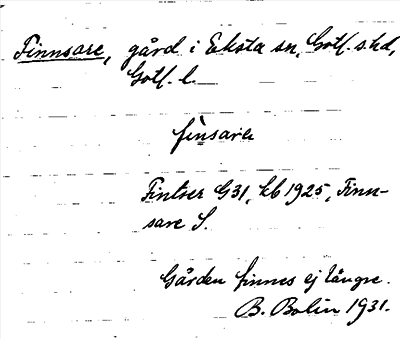 Finnsare, gård i Eksta sn, Gotl. s. hd,
Gotl. l.
fìnsara
G 31, kb 1925, Finn-
sare S.
Gården finnes ej längre.
B. Bolin 1931.